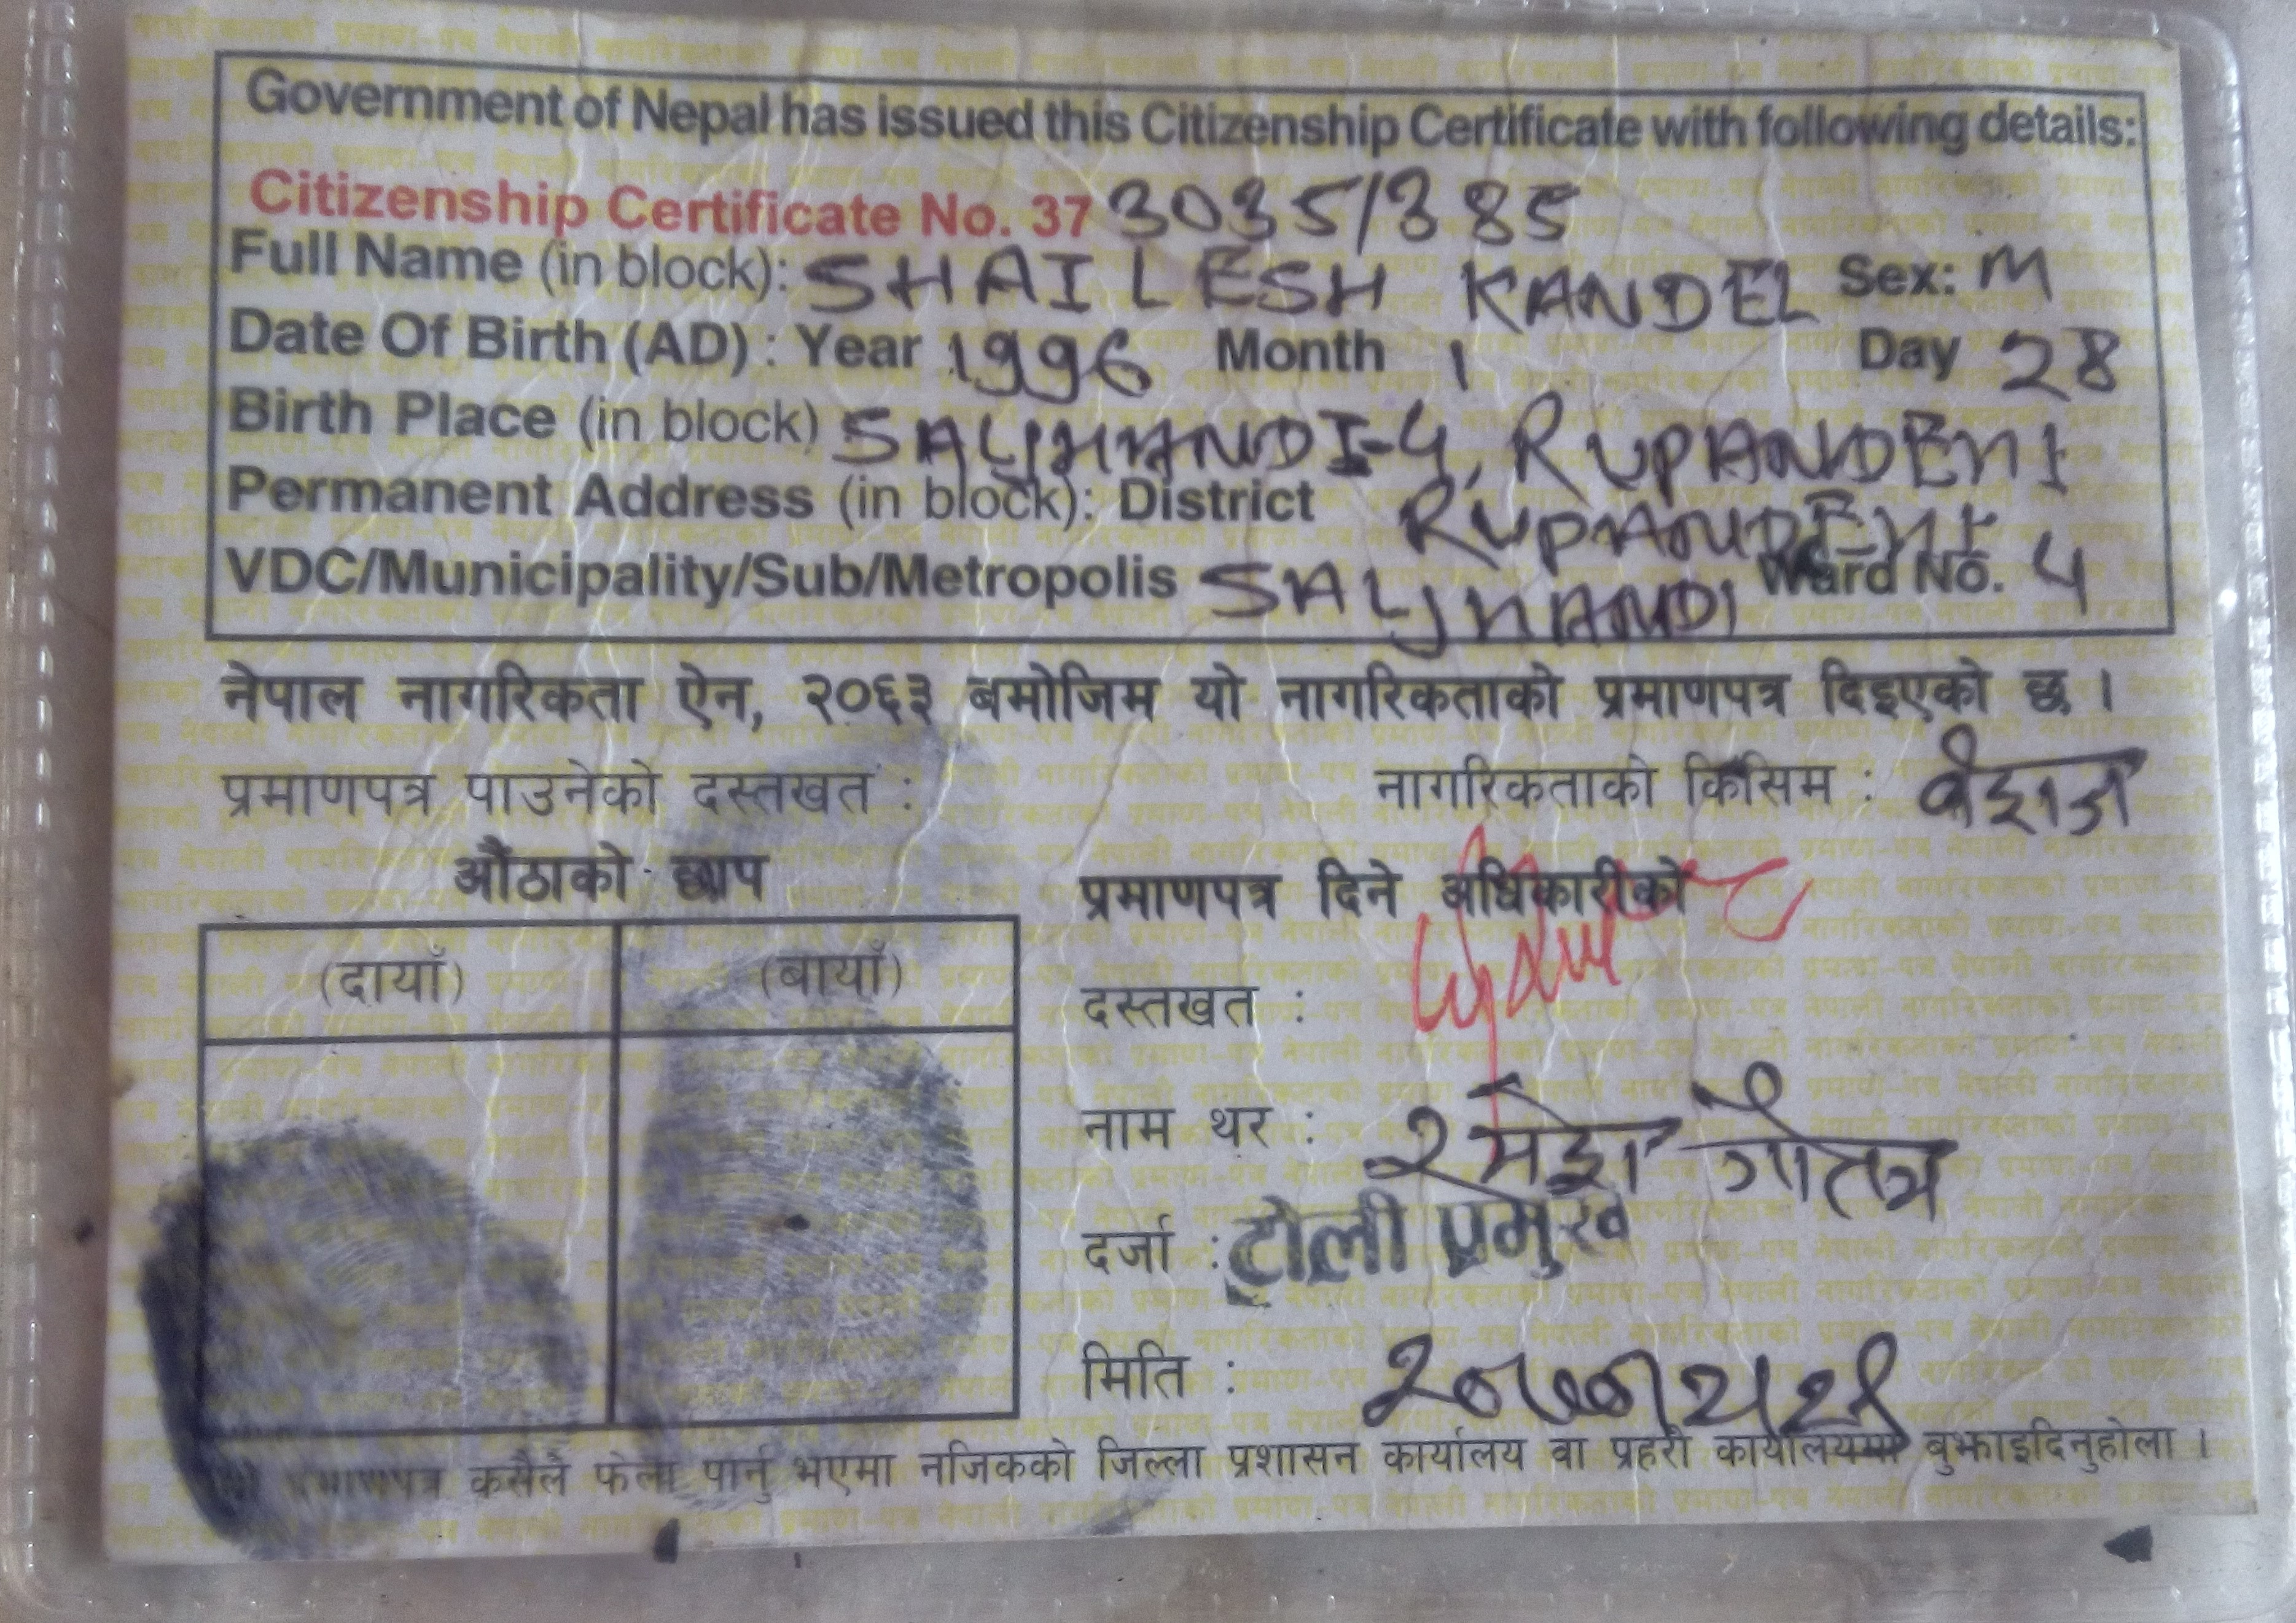 Government of Nepal has issued this Citizenship Certificate with following details:
Citizenship Certificate No. 37 3035/385
Full Name (in block): SHAILESH KANDEL Sex: M
Date Of Birth (AD) : Year 1996 Month 1 Day 28
Birth Place (in block) SALJHANDI-4, RUPANDEHI
Permanent Address (in block): District RUPANDEHI
VDC/Municipality/Sub/Metropolis SALJHANDI Ward No. 4
नेपाल नागरिकता ऐन, २०६३ बमोजिम यो नागरिकताको प्रमाणपत्र दिइएको छ ।
प्रमाणपत्र पाउनेको दस्तखत : नागरिकताको किसिम : वंशज
औंठाको छाप
(दायाँ) (बायाँ)
प्रमाणपत्र दिने अधिकारीको
दस्तखत :
नाम थर : रमेश गौतम
दर्जा : टोली प्रमुख
मिति :
प्रमाणपत्र कसैले फेला पार्नु भएमा नजिकको जिल्ला प्रशासन कार्यालय वा प्रहरी कार्यालयमा बुझाइदिनुहोला ।